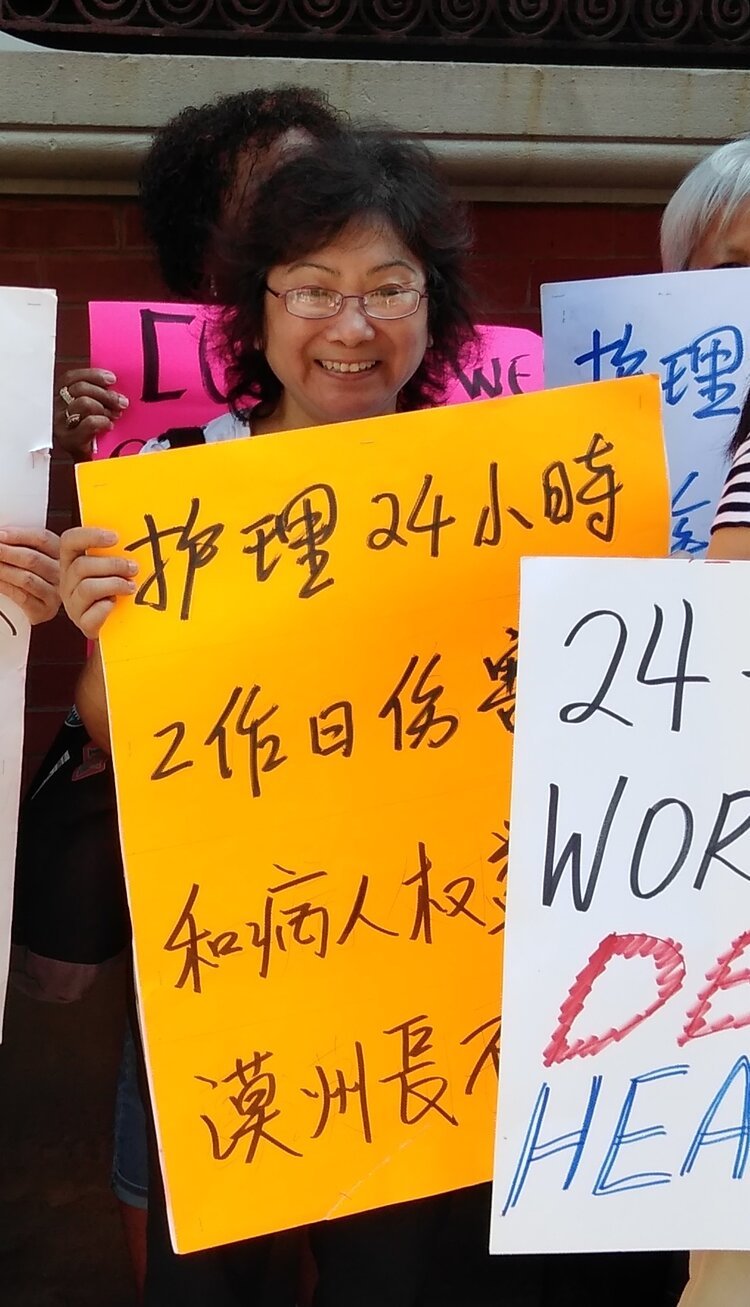 WE
护理
护理24小時
工作日伤害
和病人权
漠州長不
24-
WOR
DE
HEA